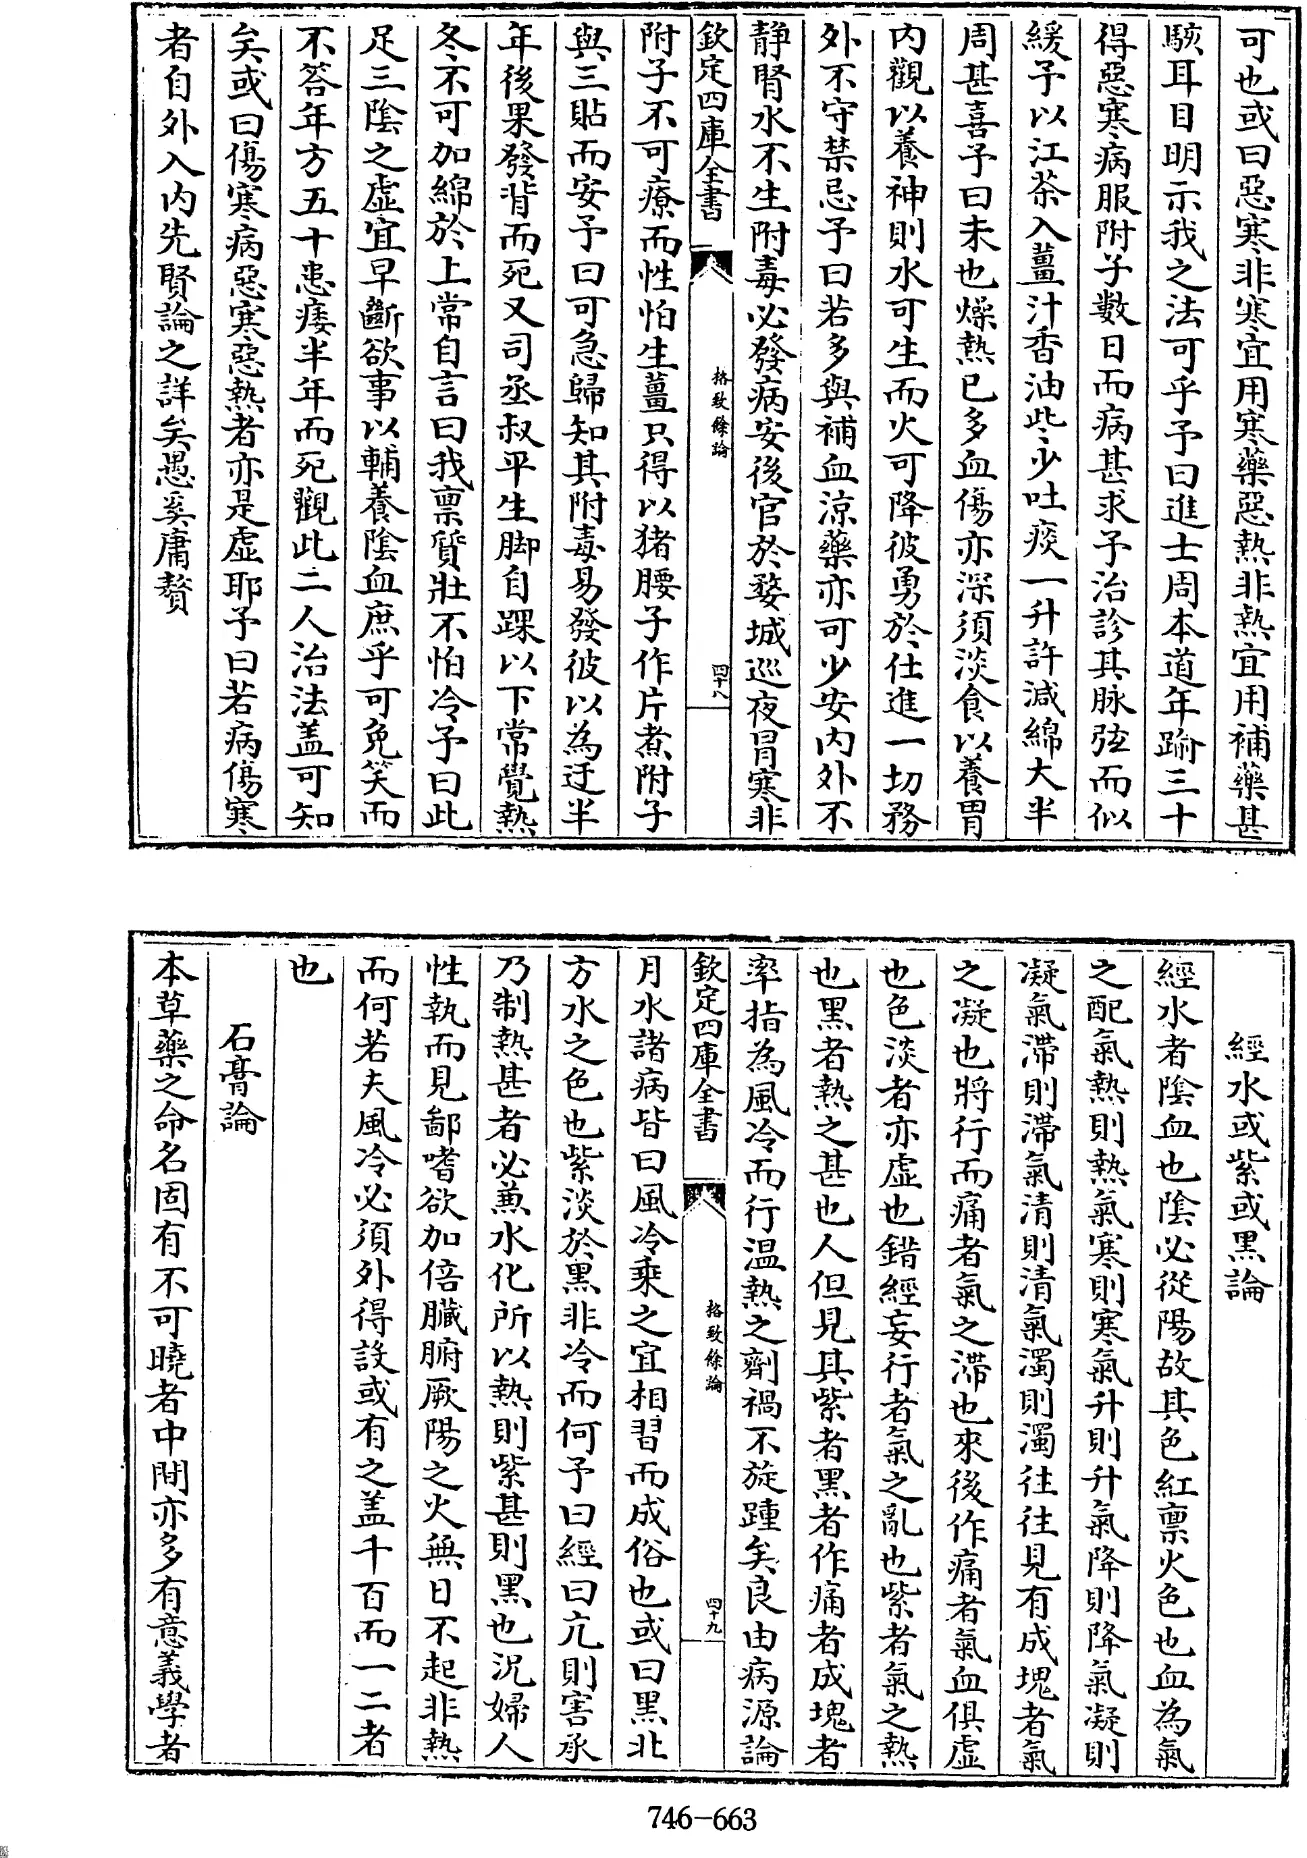 可也或曰惡寒非寒宜用寒藥惡熱非熱宜用補藥甚
駭耳目明示我之法可乎予曰進士周本道年踰三十
得惡寒病服附子數日而病甚求予治診其脉弦而似
緩予以江茶入薑汁香油些少吐痰一升許減綿大半
周甚喜予曰未也燥熱已多血傷亦深須淡食以養胃
内觀以養神則水可生而火可降彼勇於仕進一切務
外不守禁忌予曰若多與補血涼藥亦可少安内外不
静腎水不生附毒必發病安後官於婺城巡夜冒寒非
欽定四庫全書
格致餘論
四十八
附子不可療而性怕生薑只得以猪腰子作片煮附子
與三貼而安予曰可急歸知其附毒易發彼以為迂半
年後果發背而死又司丞叔平生脚自踝以下常覺熱
冬不可加綿於上常自言曰我禀質壯不怕冷予曰此
足三陰之虚宜早斷欲事以輔養陰血庶乎可免笑而
不答年方五十患痿半年而死觀此二人治法盖可知
矣或曰傷寒病惡寒惡熱者亦是虚耶予曰若病傷寒
者自外入内先賢論之詳矣愚奚庸贅
經水或紫或黑論
經水者陰血也陰必從陽故其色紅禀火色也血為氣
之配氣熱則熱氣寒則寒氣升則升氣降則降氣凝則
凝氣滯則滯氣清則清氣濁則濁往往見有成塊者氣
之凝也將行而痛者氣之滯也來後作痛者氣血俱虚
也色淡者亦虚也錯經妄行者氣之亂也紫者氣之熱
也黑者熱之甚也人但見其紫者黑者作痛者成塊者
率指為風冷而行温熱之劑禍不旋踵矣良由病源論
欽定四庫全書
格致餘論
四十九
月水諸病皆曰風冷乘之宜相習而成俗也或曰黑北
方水之色也紫淡於黑非冷而何予曰經曰亢則害承
乃制熱甚者必兼水化所以熱則紫甚則黑也況婦人
性執而見鄙嗜欲加倍臟腑厥陽之火無日不起非熱
而何若夫風冷必須外得設或有之盖千百而一二者
也
石膏論
本草藥之命名固有不可曉者中間亦多有意義學者
746-663